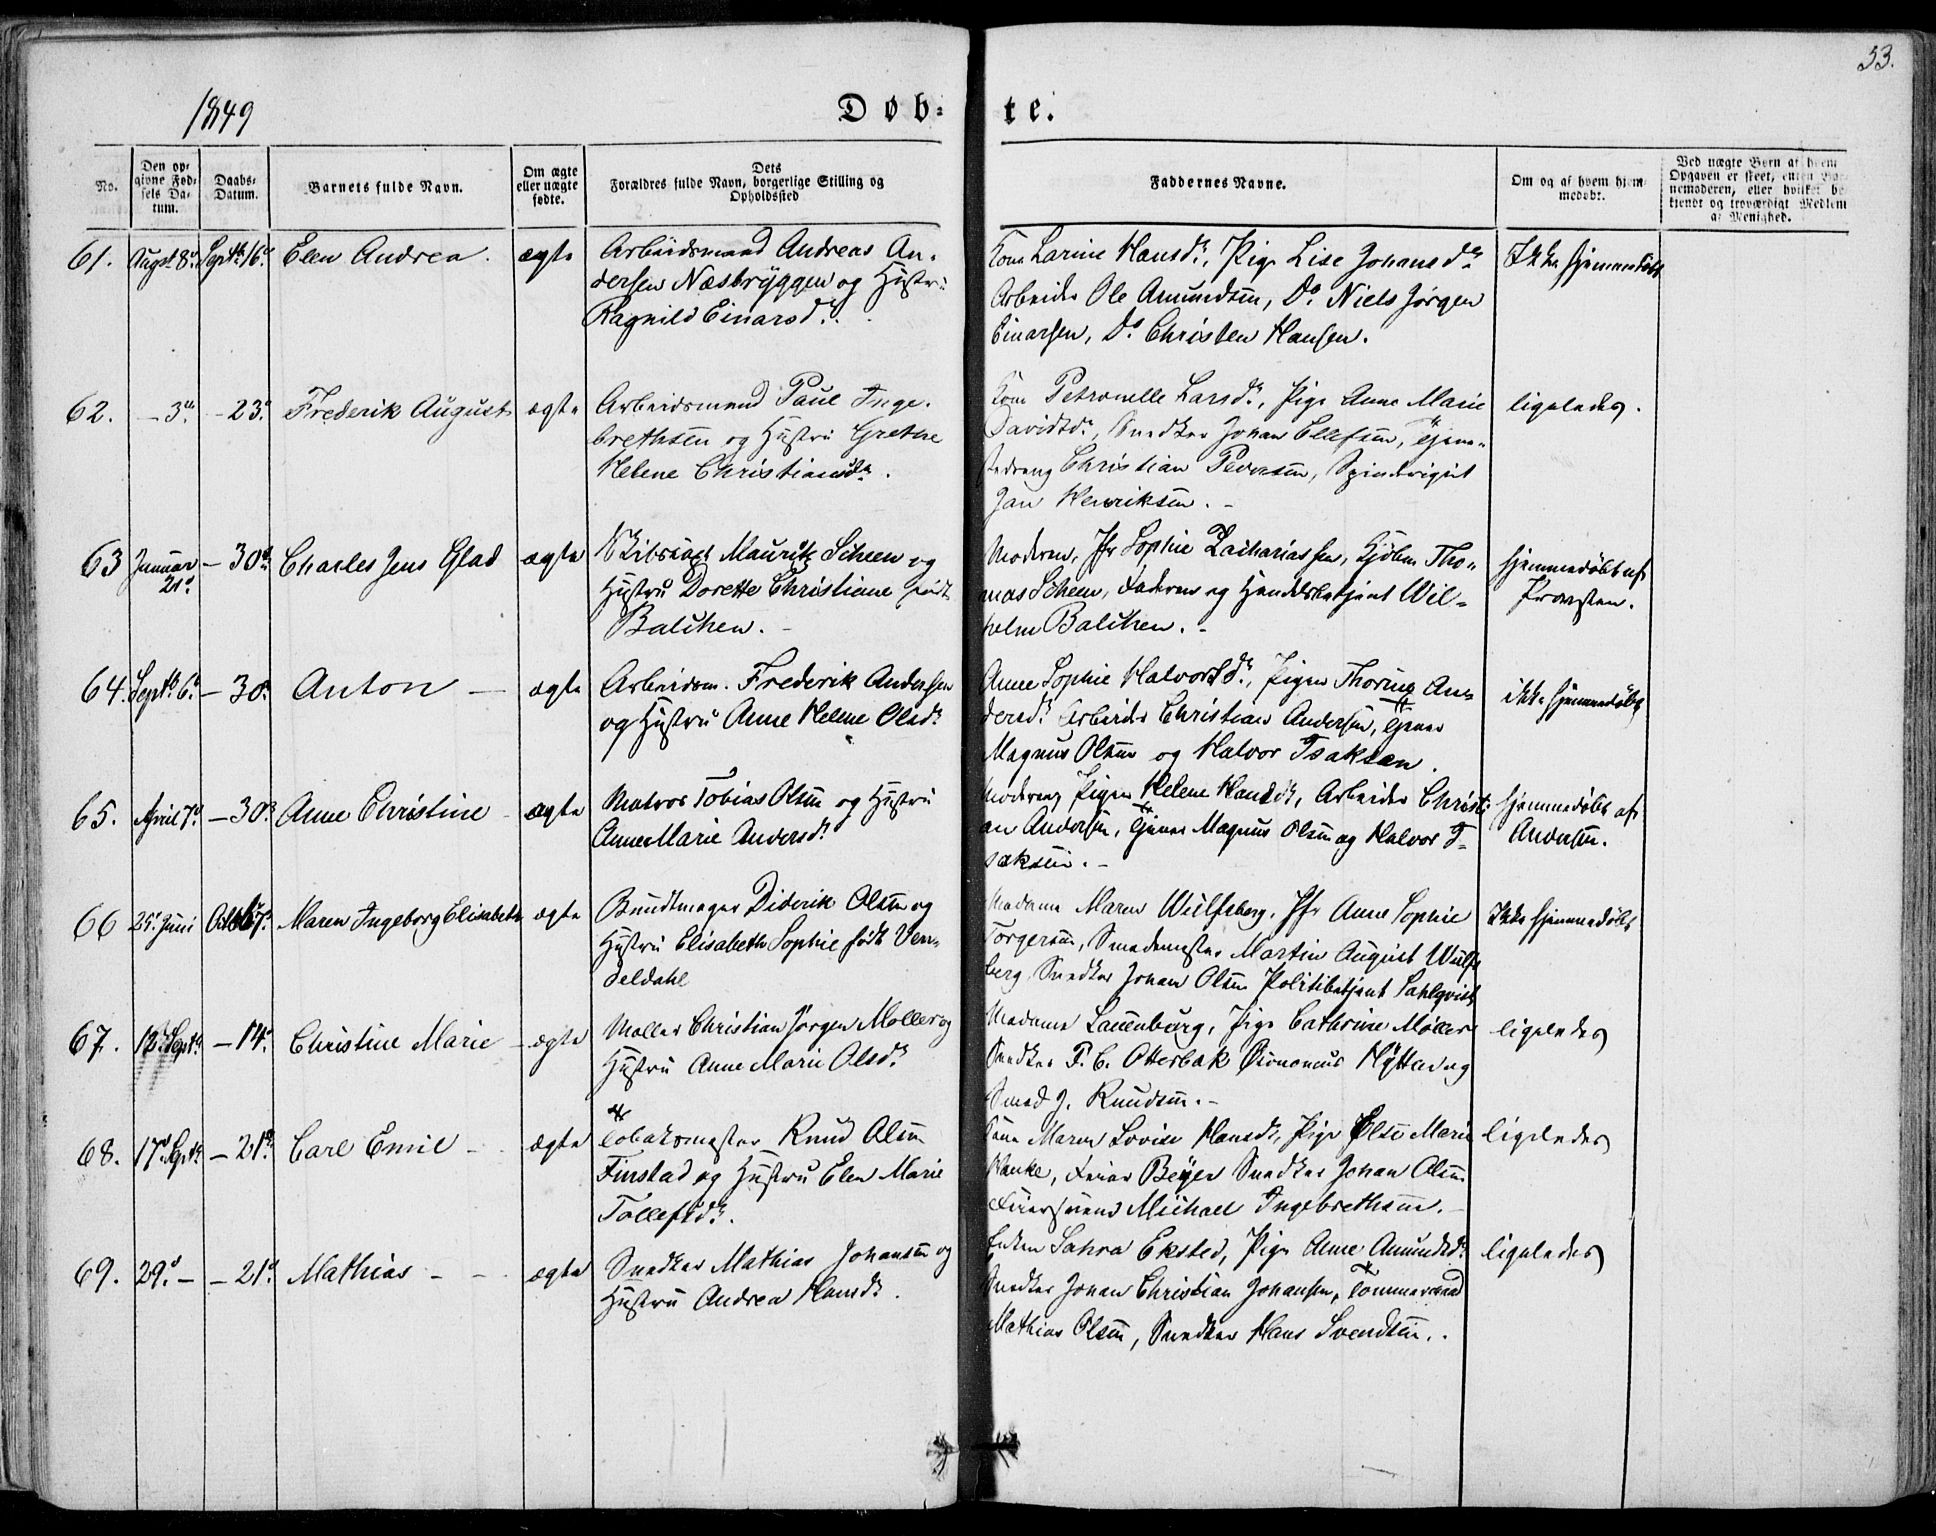 53.
1849
Døb-
te.
No.
Den op-
givne Fød-
sels Da-
tum.
Daabs-
Datum.
Barnets fulde Navn.
Om ægte
eller uægte
fødte.
Dets
Forældres fulde Navn, borgerlige Stilling og
Opholdssted
Faddernes Navne.
Om og af hvem hjem-
medøbt.
Ved uægte Børn af hvem
Opgaven er skeet, enten Bar-
nemoderen, eller hvilket be-
kjendt og troværdigt Medlem
af Menighed.
61. Augst 8d. Septb. 16d. Elen Andrea. ægte
Arbeidsmand Andreas An-
dersen Næsbryggen og Hustru
Ragnild Einarsdr.
Kone Larine Hansdr., Pige Lise Johansdr.
Arbeider Ole Amundsen, Do. Niels Jørgen
Einarsen, Do. Christen Hansen.
Ikke hjemmedøbt
62. - 3die - 23d. Frederik August ægte
Arbeidsmand Paul Inge-
brethsen og Hustru Grethe
Helene Christiansdr.
Kone Petronelle Larsdr., Pige Anne Marie
Davidsdr., Snedker Johan Ellefsen, Tjene-
stedreng Christian Pedersen,
Jan Henriksen. -
ligeledes.
63 Januar
21d. - 30d. Charles Jens Glad ægte
Mauritz Scheen og
Hustru Dorette Christiane født
Balchen. -
Moderen, Jfr Sophie Zachariassen, Kjøbm. Tho-
mas Scheen, Faderen og Handelsbetjent Wil-
helm Balchen. -
hjemmedøbt af
Provsten.
64. Septb. 6d. - 30d. Anton - ægte
Arbeidsm. Frederik Andersen
og Hustru Anne Helene Olsdr.
Anne Sophie Halvorsdr., Pigen Thorine An-
dersdr. Arbeider Christian Andersen, Tjener
Magnus Olsen og Halvor Isaksen.
ikke hjemmedøbt
65. April 7d. - 30d. Anne Christine - ægte
Matros Tobias Olsen og Hustru
Anne Marie Andersdr.
Moderen, Pigen Helene Hansdr., Arbeider Christi-
an Andersen, Tjener Magnus Olsen og Halvor I-
saksen. -
hjemmedøbt af
Andersen.
66 25d. Juni Octb. 7d. Maren Ingeborg Elisabeth ægte
Bundtmager Diderik Olsen og
Hustru Elisabeth Sophie født Ven-
deldahl
Madame Maren Wulfsberg, Jfr Anne Sophie
Torgersen, Smedemester Martin August Wulfs-
berg, Snedker Johan Olsen Politibetjent Sahlqvist
Ikke hjemmedøbt
67. 12d. Septb. - 14d. Christine Marie - ægte
Møller Christian Jørgen Møller og
Hustru Anne Marie Olsdr.
Madame Lauenburg, Pige Cathrine Møller
Snedker F. C. Otterbak Øconomus Hytten og
Smed J. Knudsen. -
ligeledes
68. 17d. Septb. - 21d. Carl Emil - ægte
Tobaksmester Knud Olsen
Finstad og Hustru Elen Marie
Tollefsdr.
Kone Maren Lovise Hansdr., Pige Olse Marie
Hanke, Feier Beyer Snedker Johan Olsen
Feiersvend Michael Ingebrethsen. -
ligeledes
69. 29d. - - 21d. Mathias - - ægte
Snedker Mathias Johansen og
Hustru Andrea Hansdr.
Enken Sahra Eksted, Pige Anne Amundsdr.
Snedker Johan Christian Johansen, Tømmermand
Mathias Olsen, Snedker Hans Svendsen.
ligeledes